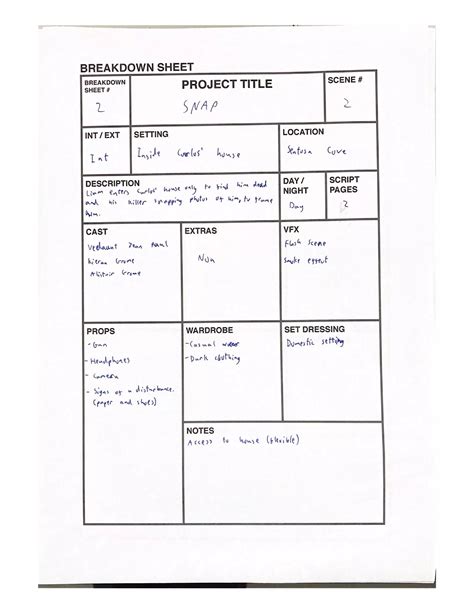 BREAKDOWN SHEET
BREAKDOWN SHEET #
2
PROJECT TITLE
SNAP
SCENE #
2
INT / EXT
Int
SETTING
Inside Carlos' house
LOCATION
Sentosa Cove
DESCRIPTION
Liam enters Carlos' house only to find him dead
and his killer snapping photos of him, to frame
him.
DAY / NIGHT
Day
SCRIPT PAGES
2
CAST
Dean Paul
Kieran Grome
Alistair Grome
EXTRAS
Non
VFX
Flash scene
Smoke effect
PROPS
- Gun
- Headphones
- Camera
- Signs of a disturbance.
(paper and shoes)
WARDROBE
- Casual
- Dark clothing
SET DRESSING
Domestic setting
NOTES
Access to house (flexible)